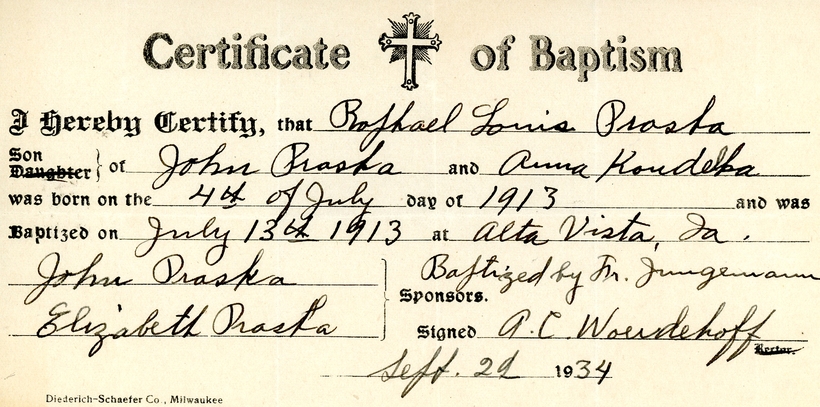 Certificate of Baptism
I Hereby Certify, that Raphael Louis Praska
Son
Daughter } of John Praska and Anna Koudelka
was born on the 4th of July day of 1913 and was
Baptized on July 13th 1913 at Alta Vista, Ia.
John Praska
Elizabeth Praska
Baptized by Fr. Jungemann
Sponsors.
Signed A.C. Woerdehoff
Rector.
Sept. 29 1934
Diederich-Schaefer Co., Milwaukee